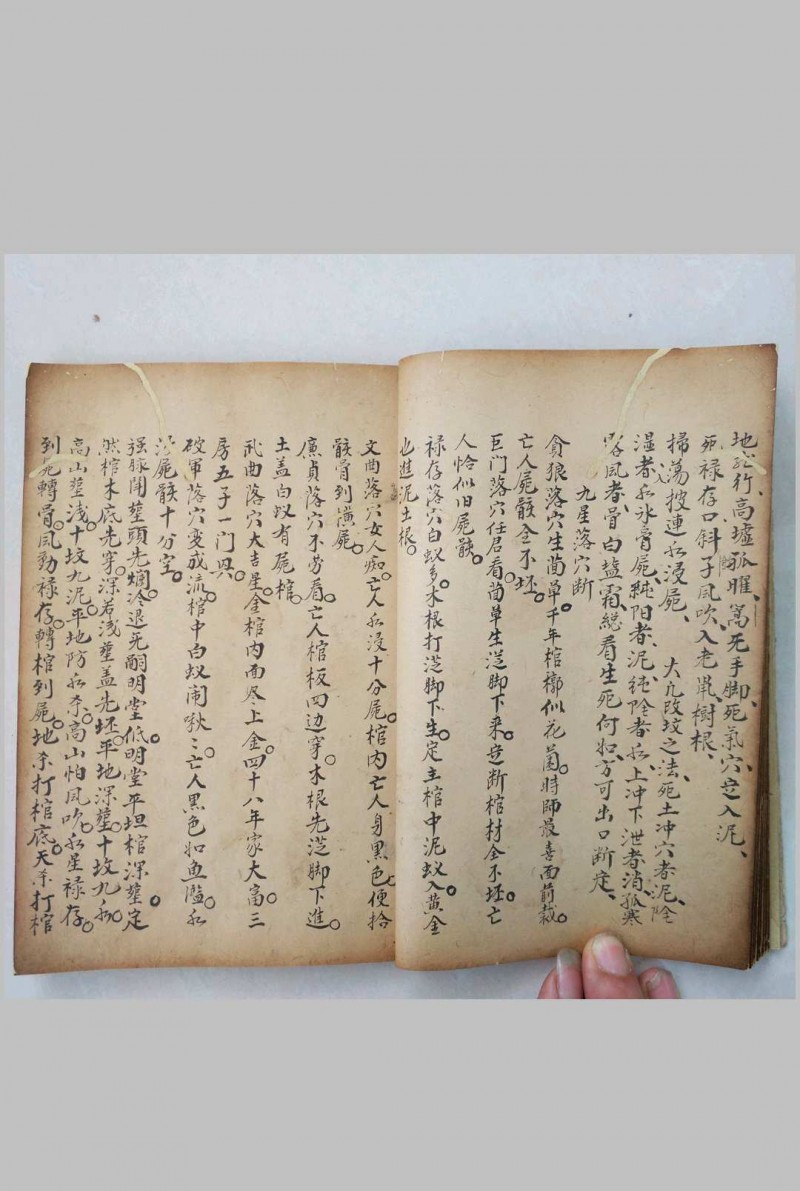 地行高墟孤曜、窩死手脚、死氣穴定入泥、
死禄存口斜子風吹、入老鼠樹根、
掃蕩披連水浸屍、 大凢改坟之法、死土冲穴者泥、陰
湿者水氷骨屍、純阳者、泥純陰者水、上冲下泄者消、孤寒
露風者、骨白塩霜、総看生死何如、方可出口断定、
九星落穴断
貪狼落穴生茵草。千年棺槨似花蘭。時師最喜面前裁。
亡人屍骸全不坯。
巨门落穴任君看。茵草生从脚下来。定断棺材全不坯。亡
人恰似旧屍骸。
禄存落穴白蚁多。木根打从脚下生。定主棺中泥蚁入。黄金
也進泥土根。
文曲落穴女人痴。亡人水浸十分屍。棺内亡人身黑色。便拾
骸骨到横屍。
廉貞落穴不劳看。亡人棺板四边穿。木根先从脚下進。
土盖白蚁有屍棺。
武曲落穴大吉星。金棺内面尽上金。四十八年家大富。三
房五子一门興。
破軍落穴变成流。棺中白蚁闹啾〻。亡人黑色如鱼。水
屍骸十分空。
强脉開塟頭先爛。冷退死嗣明堂低。明堂平坦棺深塟定
然棺木底先穿。深若浅塟盖先坯。平地深塟十坟九水。
高山塟浅。十坟九泥。平地防水杀。高山怕風吹。水星禄存。
到死轉骨。風動禄存。轉棺到屍。地杀打棺底。天杀打棺